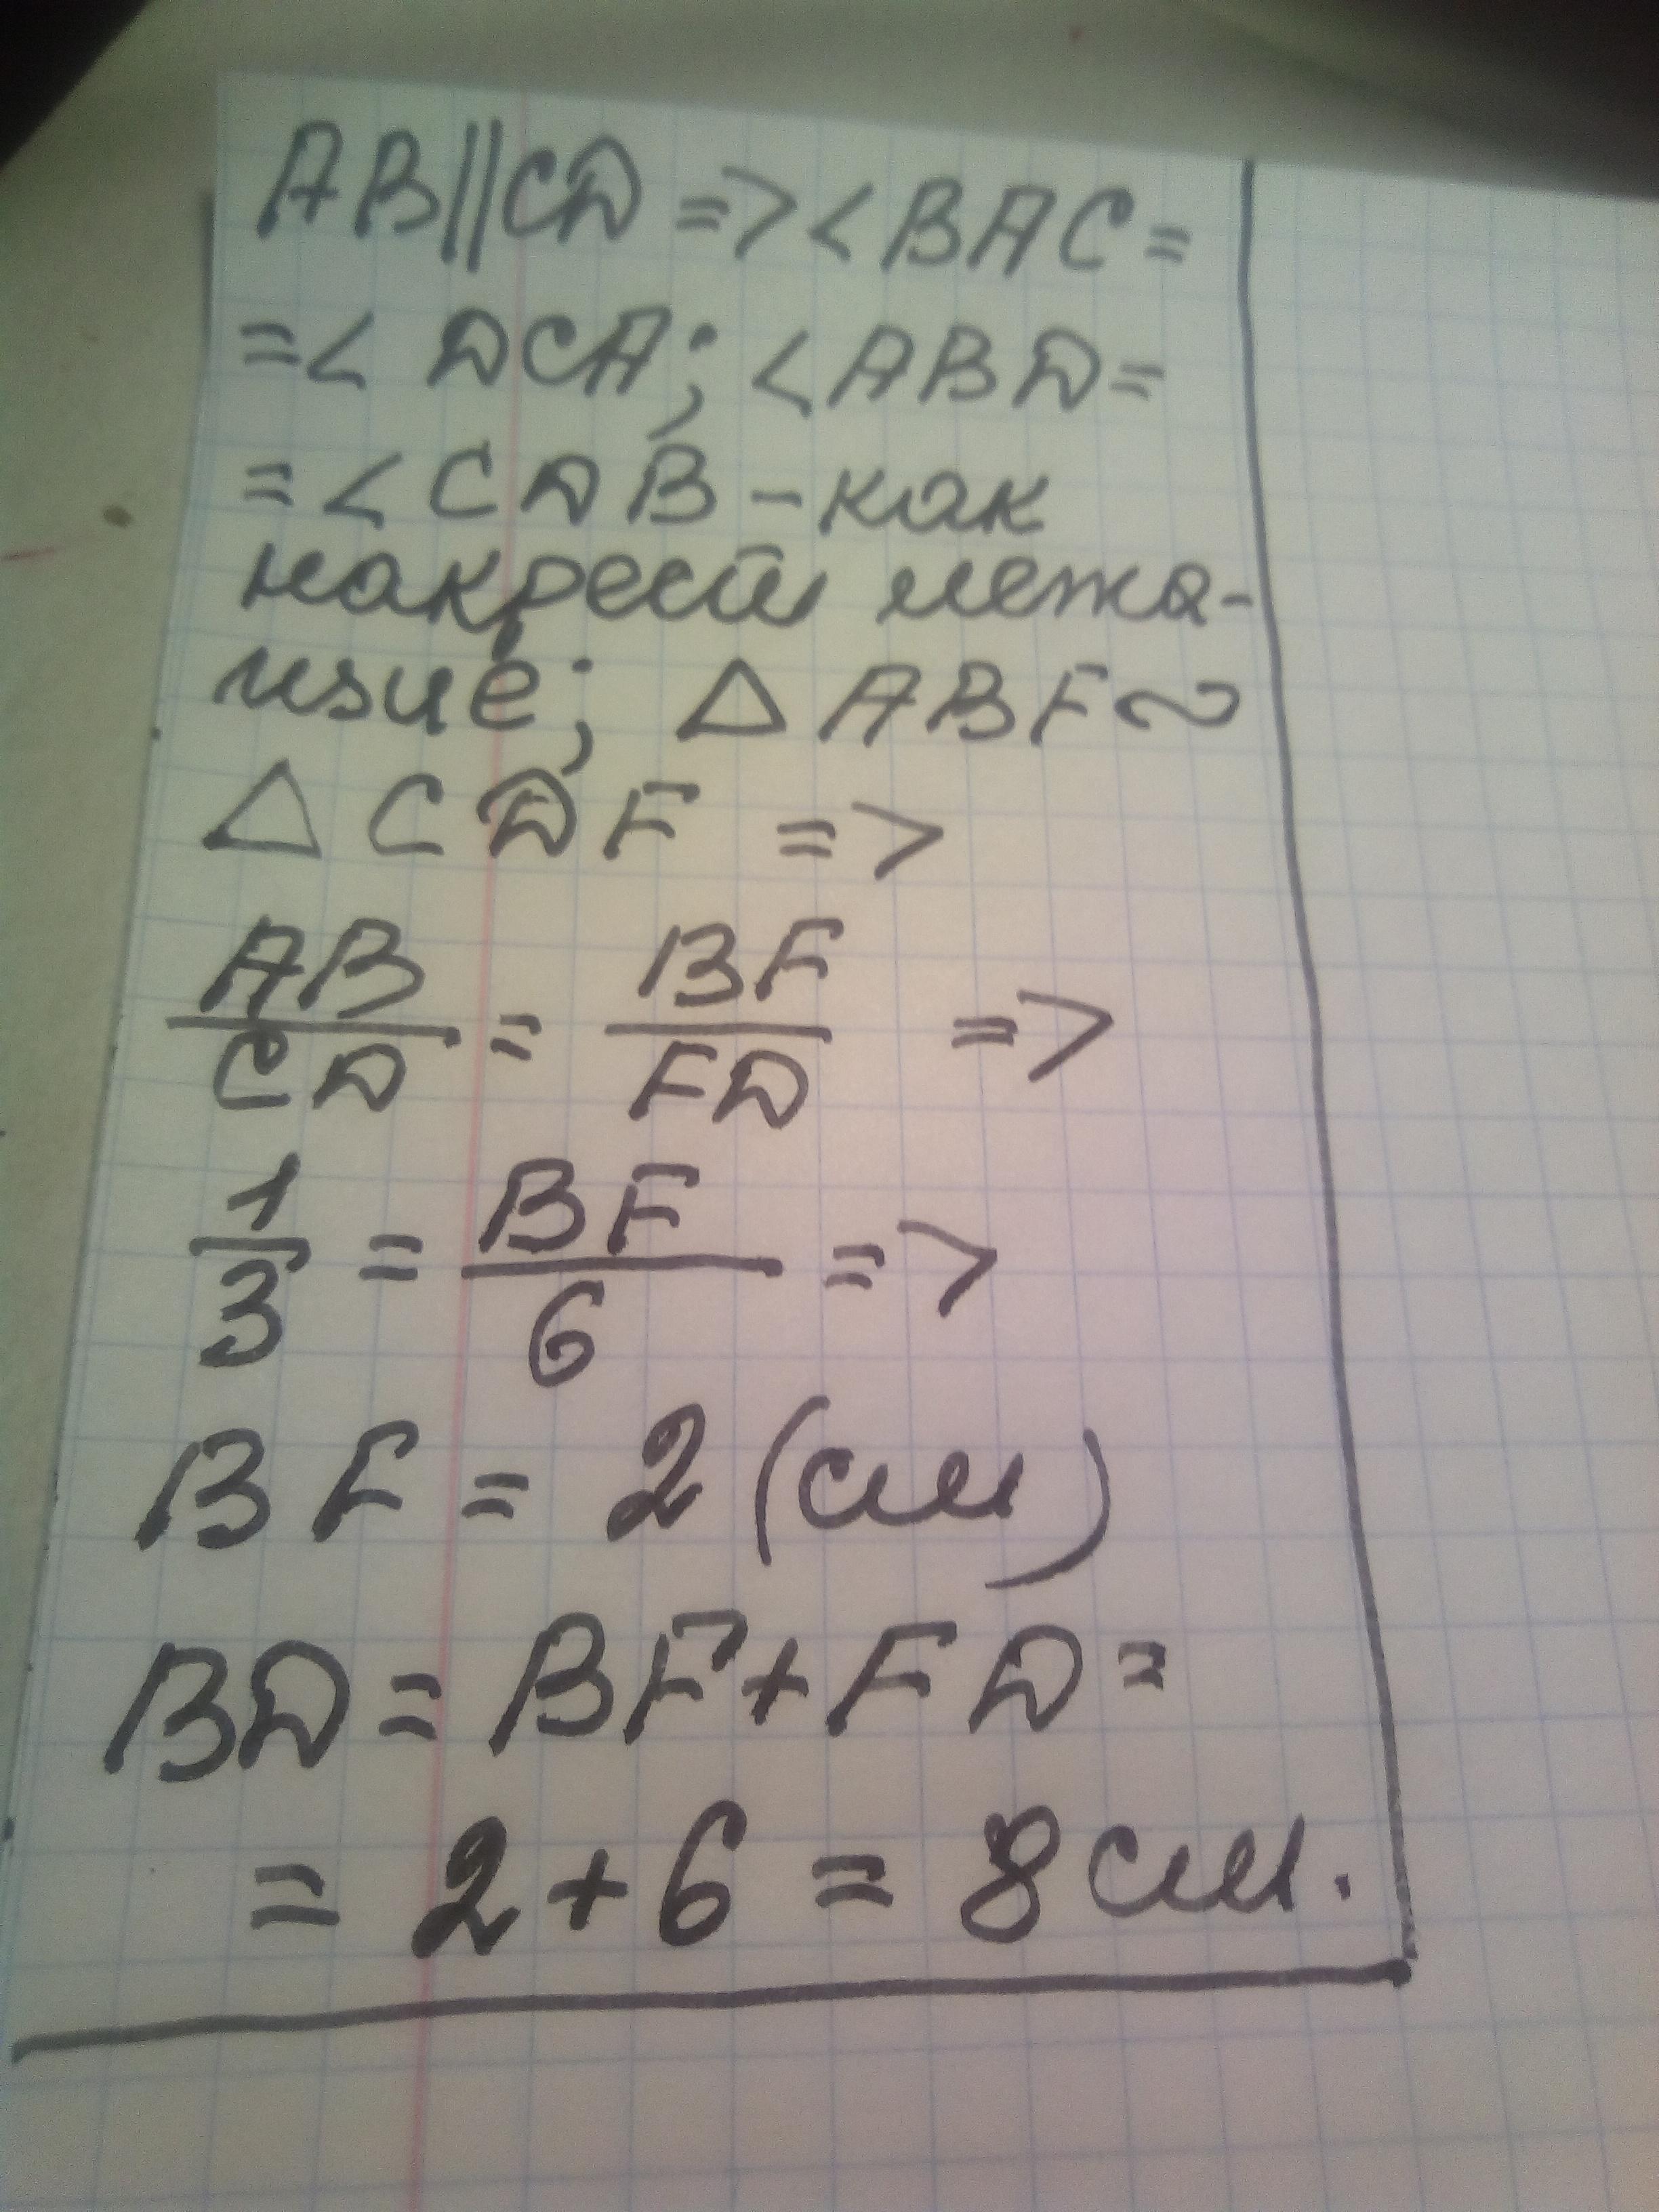 AB||CD => < BAC =
= < DCA; < ABD =
= < CDB - как
накрест лежа-
щие; △ ABF ~
△ CDF =>
AB/CD = BF/FD =>
1/3 = BF/6 =>
BF = 2 (см)
BD = BF + FD =
= 2 + 6 = 8 см.